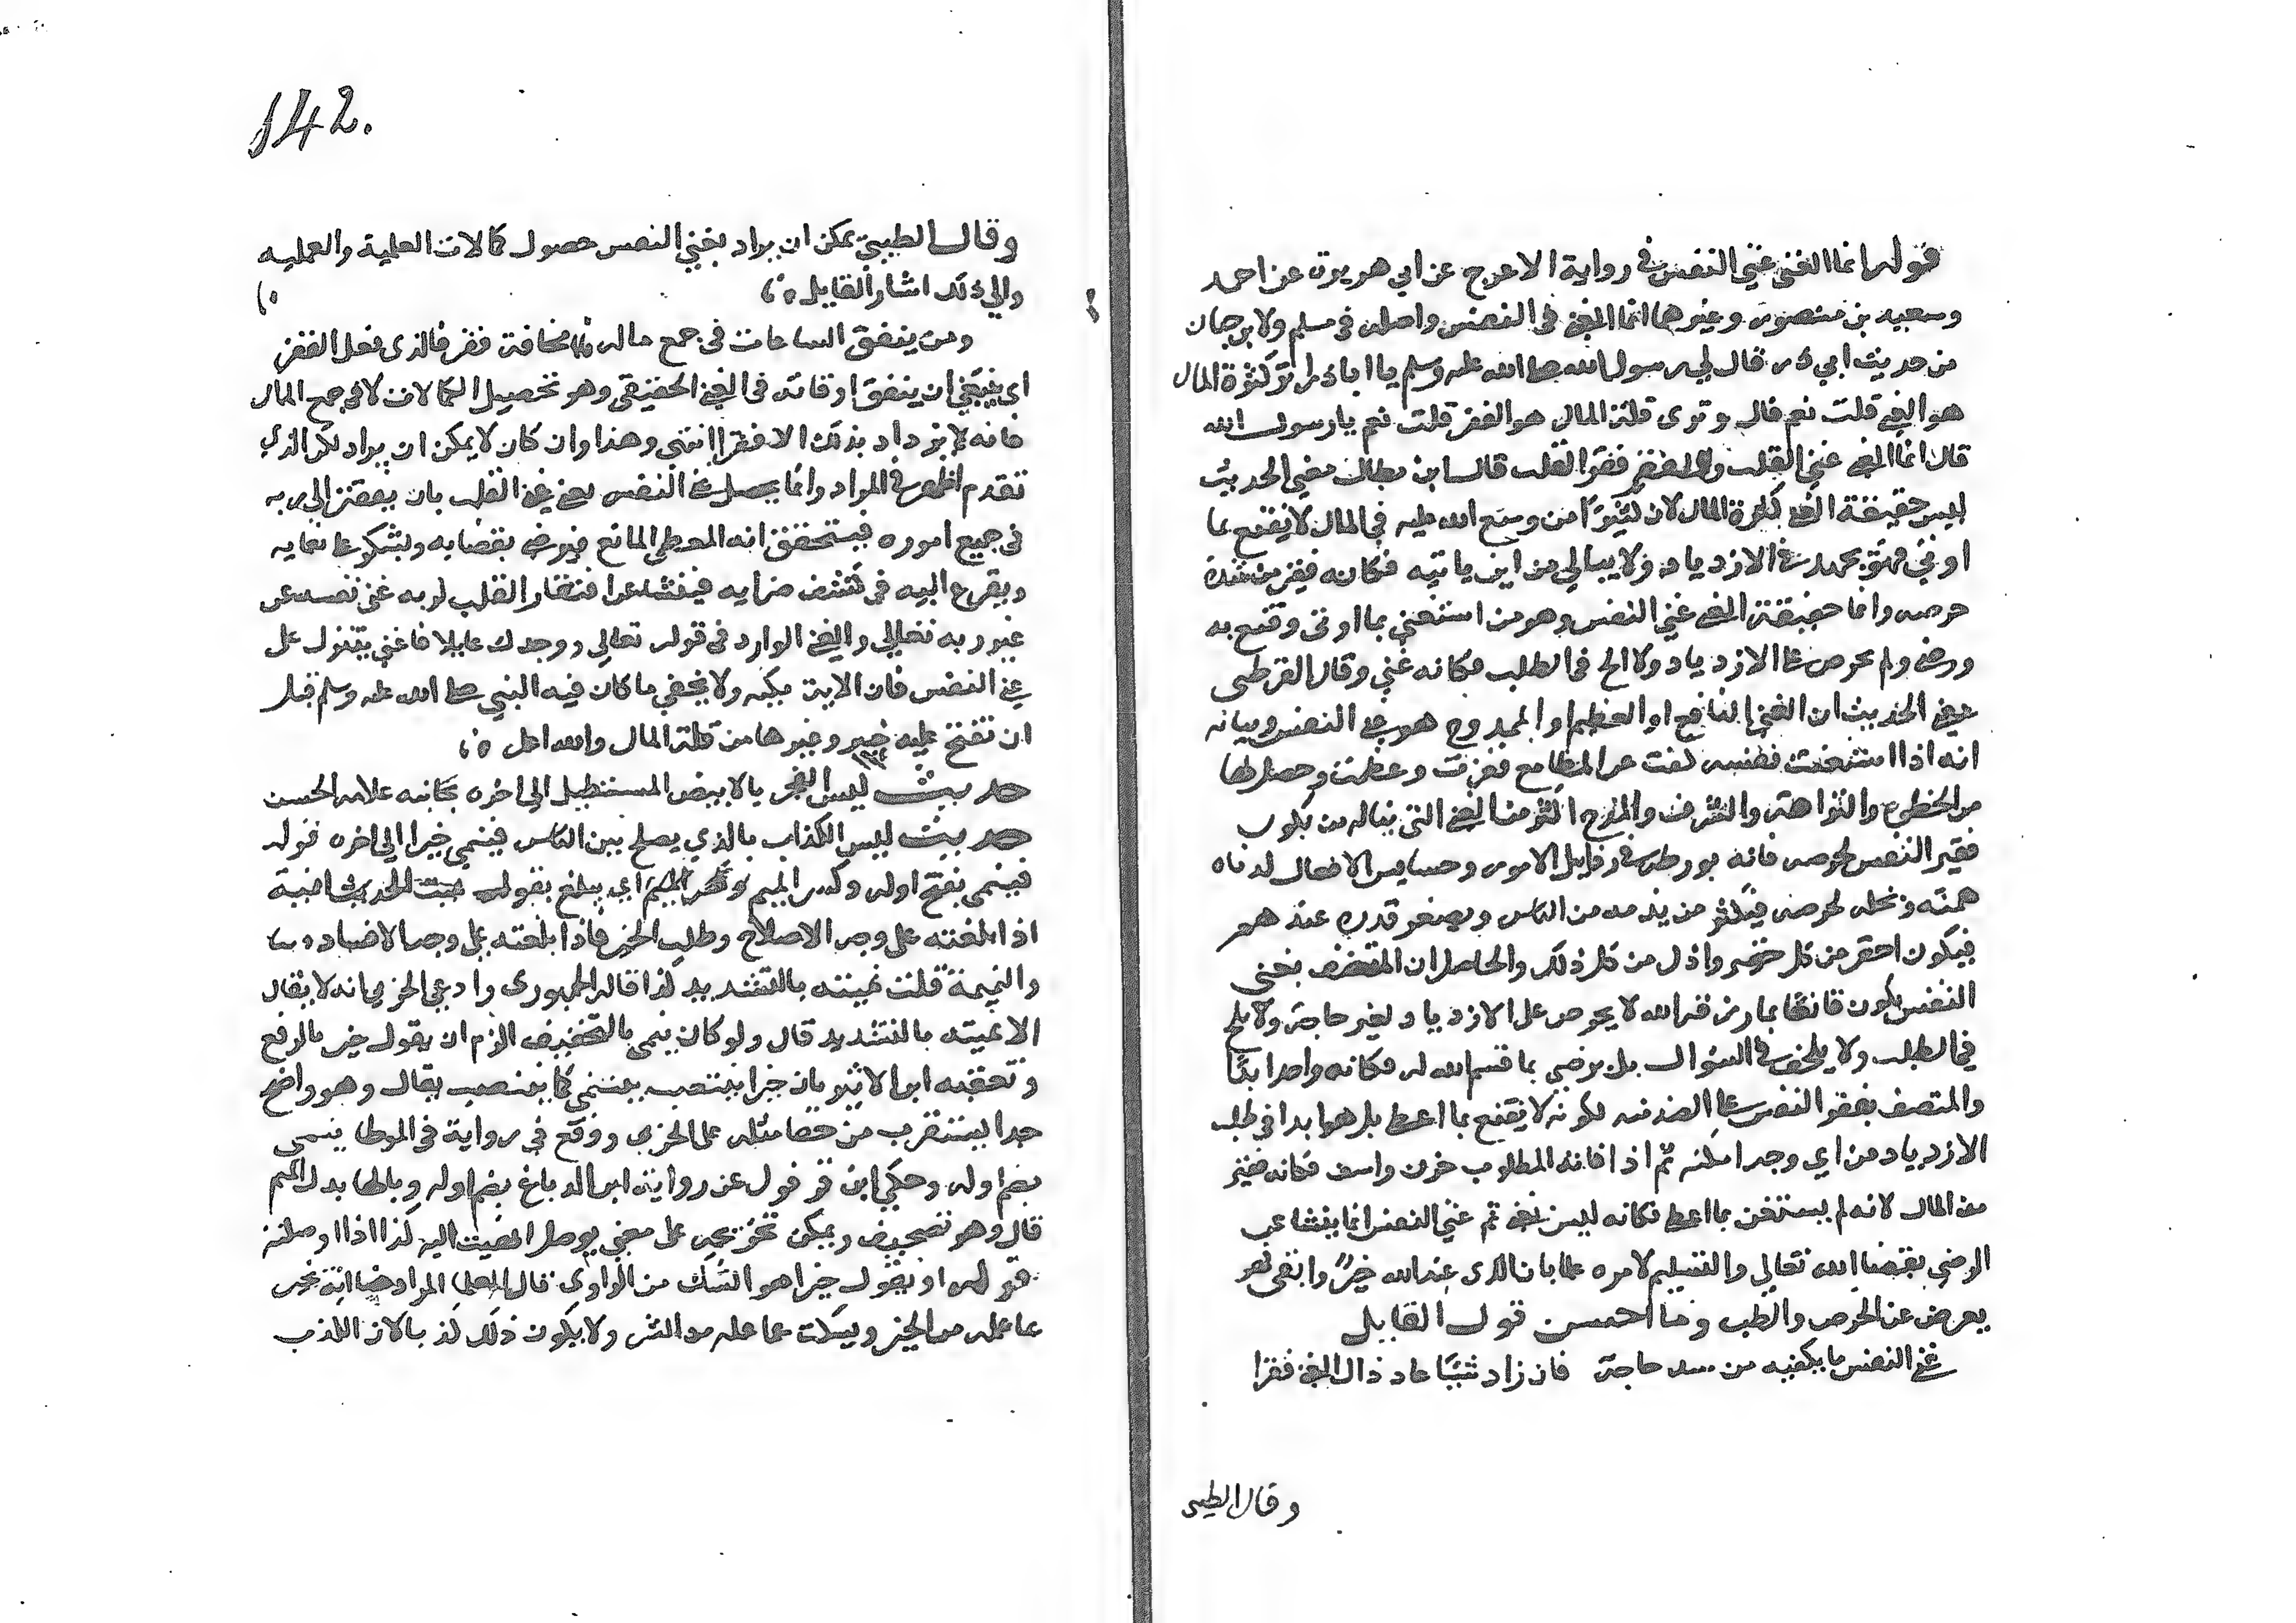 قوله انما الغني غني النفس في رواية الاعرج عن ابي هريرة عن احمد
وسعيد بن منصور وغيرهما انما الغني في النفس واصله في مسلم ولابن حبان
من حديث ابي ذر قال لي رسول الله صلى الله عليه وسلم يا ابا ذر اترى كثرة المال
هو الغني قلت نعم قال وترى قلة المال هو الفقر قلت نعم يا رسول الله
قال انما الغني غني القلب والفقر فقر القلب قال ابن بطال معني الحديث
ليس حقيقة الغني كثرة المال لان كثيرا من وسع الله عليه في المال لا يقنع بما
اوتي فهو يجهد في الازدياد ولا يبالي من اين ياتيه فكانه فقير من شدة
حرصه وانما حقيقة الغني غني النفس وهو من استغني بما اوتى وقنع به
ورضي ولم يحرص على الازدياد ولا الح في الطلب فكانه غني وقال القرطبي
معني الحديث ان الغني النافع او العظيم او الممدوح هو غني النفس وبيانه
انه اذا استغنت نفسه كفت عن المطامع فعزت وعظمت وحصل لها
من الحظوة والنزاهة والشرف والمدح اكثر من الغني الذي يناله من يكون
فقير النفس لحرصه فانه يورطه في رذايل الامور وخسايس الافعال لدناة
همته وبخله لحرصه فيكثر من يذمه من الناس ويصغر قدره عندهم
فيكون احقر من كل حقير واذل من كل ذليل والحاصل ان المتصف بغني
النفس يكون قانعا بما رزقه الله لا يحرص على الازدياد لغير حاجة ولا يلح
في الطلب ولا يلحف في السوال بل يرضي بما قسم الله له فكانه واجد ابدا
والمتصف بفقر النفس على الضد منه لكونه لا يقنع بما اعطي بل هو ابدا في طلب
الازدياد من اي وجه امكنه ثم اذا فاته المطلوب حزن واسف فكانه فقير
من المال لانه لم يستغن بما اعطي فكانه ليس بغني ثم غني النفس انما ينشا عن
الرضي بقضا الله تعالي والتسليم لامره علما بان الذي عند الله خير وابقى فهو
يعرض عن الحرص والطلب وما احسن قول القايل
غني النفس ما يكفيه من سد حاجة فان زاد شيئا عاد ذاك الغني فقرا
وقال الطيبي
142.
وقال الطيبي يمكن ان يراد بغني النفس حصول كمالات العلمية والعمليه
والي ذلك اشار القايل
ومن ينفق الساعات في جمع ماله مخافة فقر فالذى فعل الفقر
اى ينبغي ان ينفق اوقاته في الغني الحقيقي وهو تحصيل الكمالات لا في جمع المال
فانه لا يزداد بذلك الا فقرا انتهى وهذا وان كان لا يمكن ان يراد لكن الذي
تقدم اظهر في المراد وانما يحصل غني النفس بغني القلب بان يفتقر الي ربه
في جميع اموره فيتحقق انه المعطي المانع فيرضي بقضايه ويشكر على نعمايه
ويفزع اليه في كشف ضرايه فينشا عن افتقار القلب لربه غني نفسه عن
غير ربه تعالي والغني الوارد في قوله تعالي ووجدك عايلا فاغني يتنزل على
غني النفس فان الاية مكيه ولا يخفي ما كان فيه النبي صلى الله عليه وسلم قبل
ان تفتح عليه خيبر وغيرها من قلة المال والله اعلم
حديث ليس الفجر بالابيض المستطيل الي اخره بجانبه علامة الحسن
حديث ليس الكذاب بالذي يصلح بين الناس فينمي خيرا الي اخره قوله
فينمي بفتح اوله وكسر الميم اي يبلغ بقول نميت الحديث انميه
اذا بلغته على وجه الاصلاح وطلب الخير فاذا بلغته على وجه الافساد
والنميمة قلت نميته بالتشديد كذا قاله الجمهور وادعي الحربي انه لا يقال
الا نميته بالتشديد قال ولو كان ينمي بالتخفيف الزم ان يقول خير بالرفع
وتعقبه ابن الاثير بان خيرا ينتصب بينمي كما ينتصب بقال وهو واضح
جدا يستغرب من خفا مثله على الحربي ووقع في رواية في الموطا ينمي
بضم اوله وحكي ابن قرقول عن رواية ابن الدباغ بضم اوله وبالها بدل الميم
قال وهو تصحيف ويمكن تخريجه على معني يوصل انهيت اليه كذا اذا اوصلته
قوله او يقول خيرا هو الشك من الراوي قال العلما المراد هنا انه يخبر
بما علمه من الخير ويسكت عما علمه من الشر ولا يكون ذلك كذبا لان الكذب